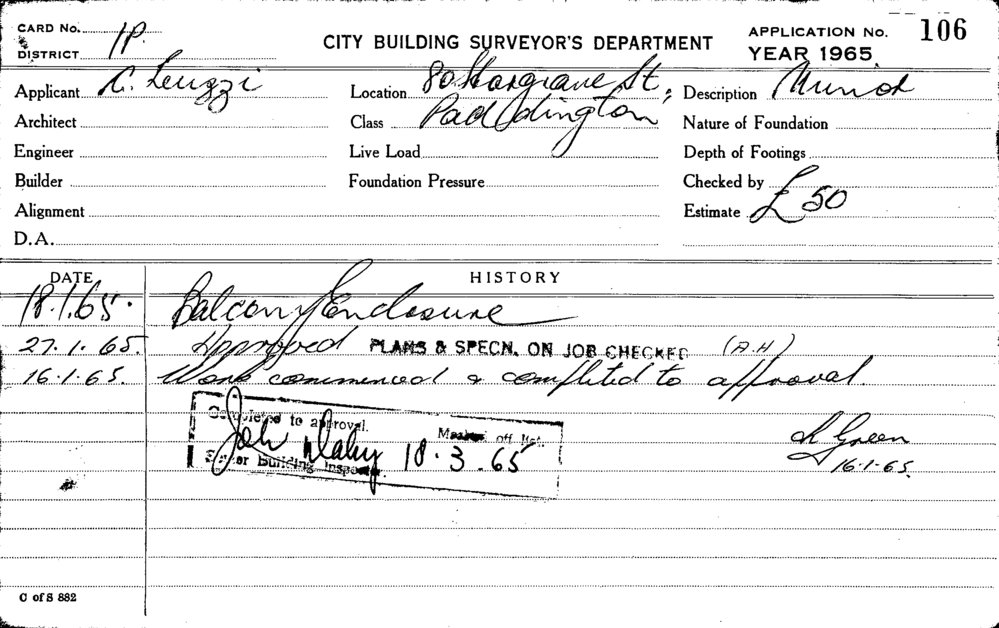 CARD No. 1P.
DISTRICT
CITY BUILDING SURVEYOR'S DEPARTMENT
APPLICATION No. 106
YEAR 1965.
Applicant C. Leuzzi
Location 80 Hargrave St,
Description Minor
Architect
Class Paddington
Nature of Foundation
Engineer
Live Load
Depth of Footings
Builder
Foundation Pressure
Checked by
Alignment
Estimate £50
D.A.
DATE HISTORY
18.1.65. Balcony Enclosure
27.1.65. Approved PLANS & SPECN. ON JOB CHECKED (A.H)
16.1.65. Work commenced & completed to approval.
Completed to approval.
Marked off list.
18.3.65
Senior Building Inspector.
Green
16.1.65.
C of S 882